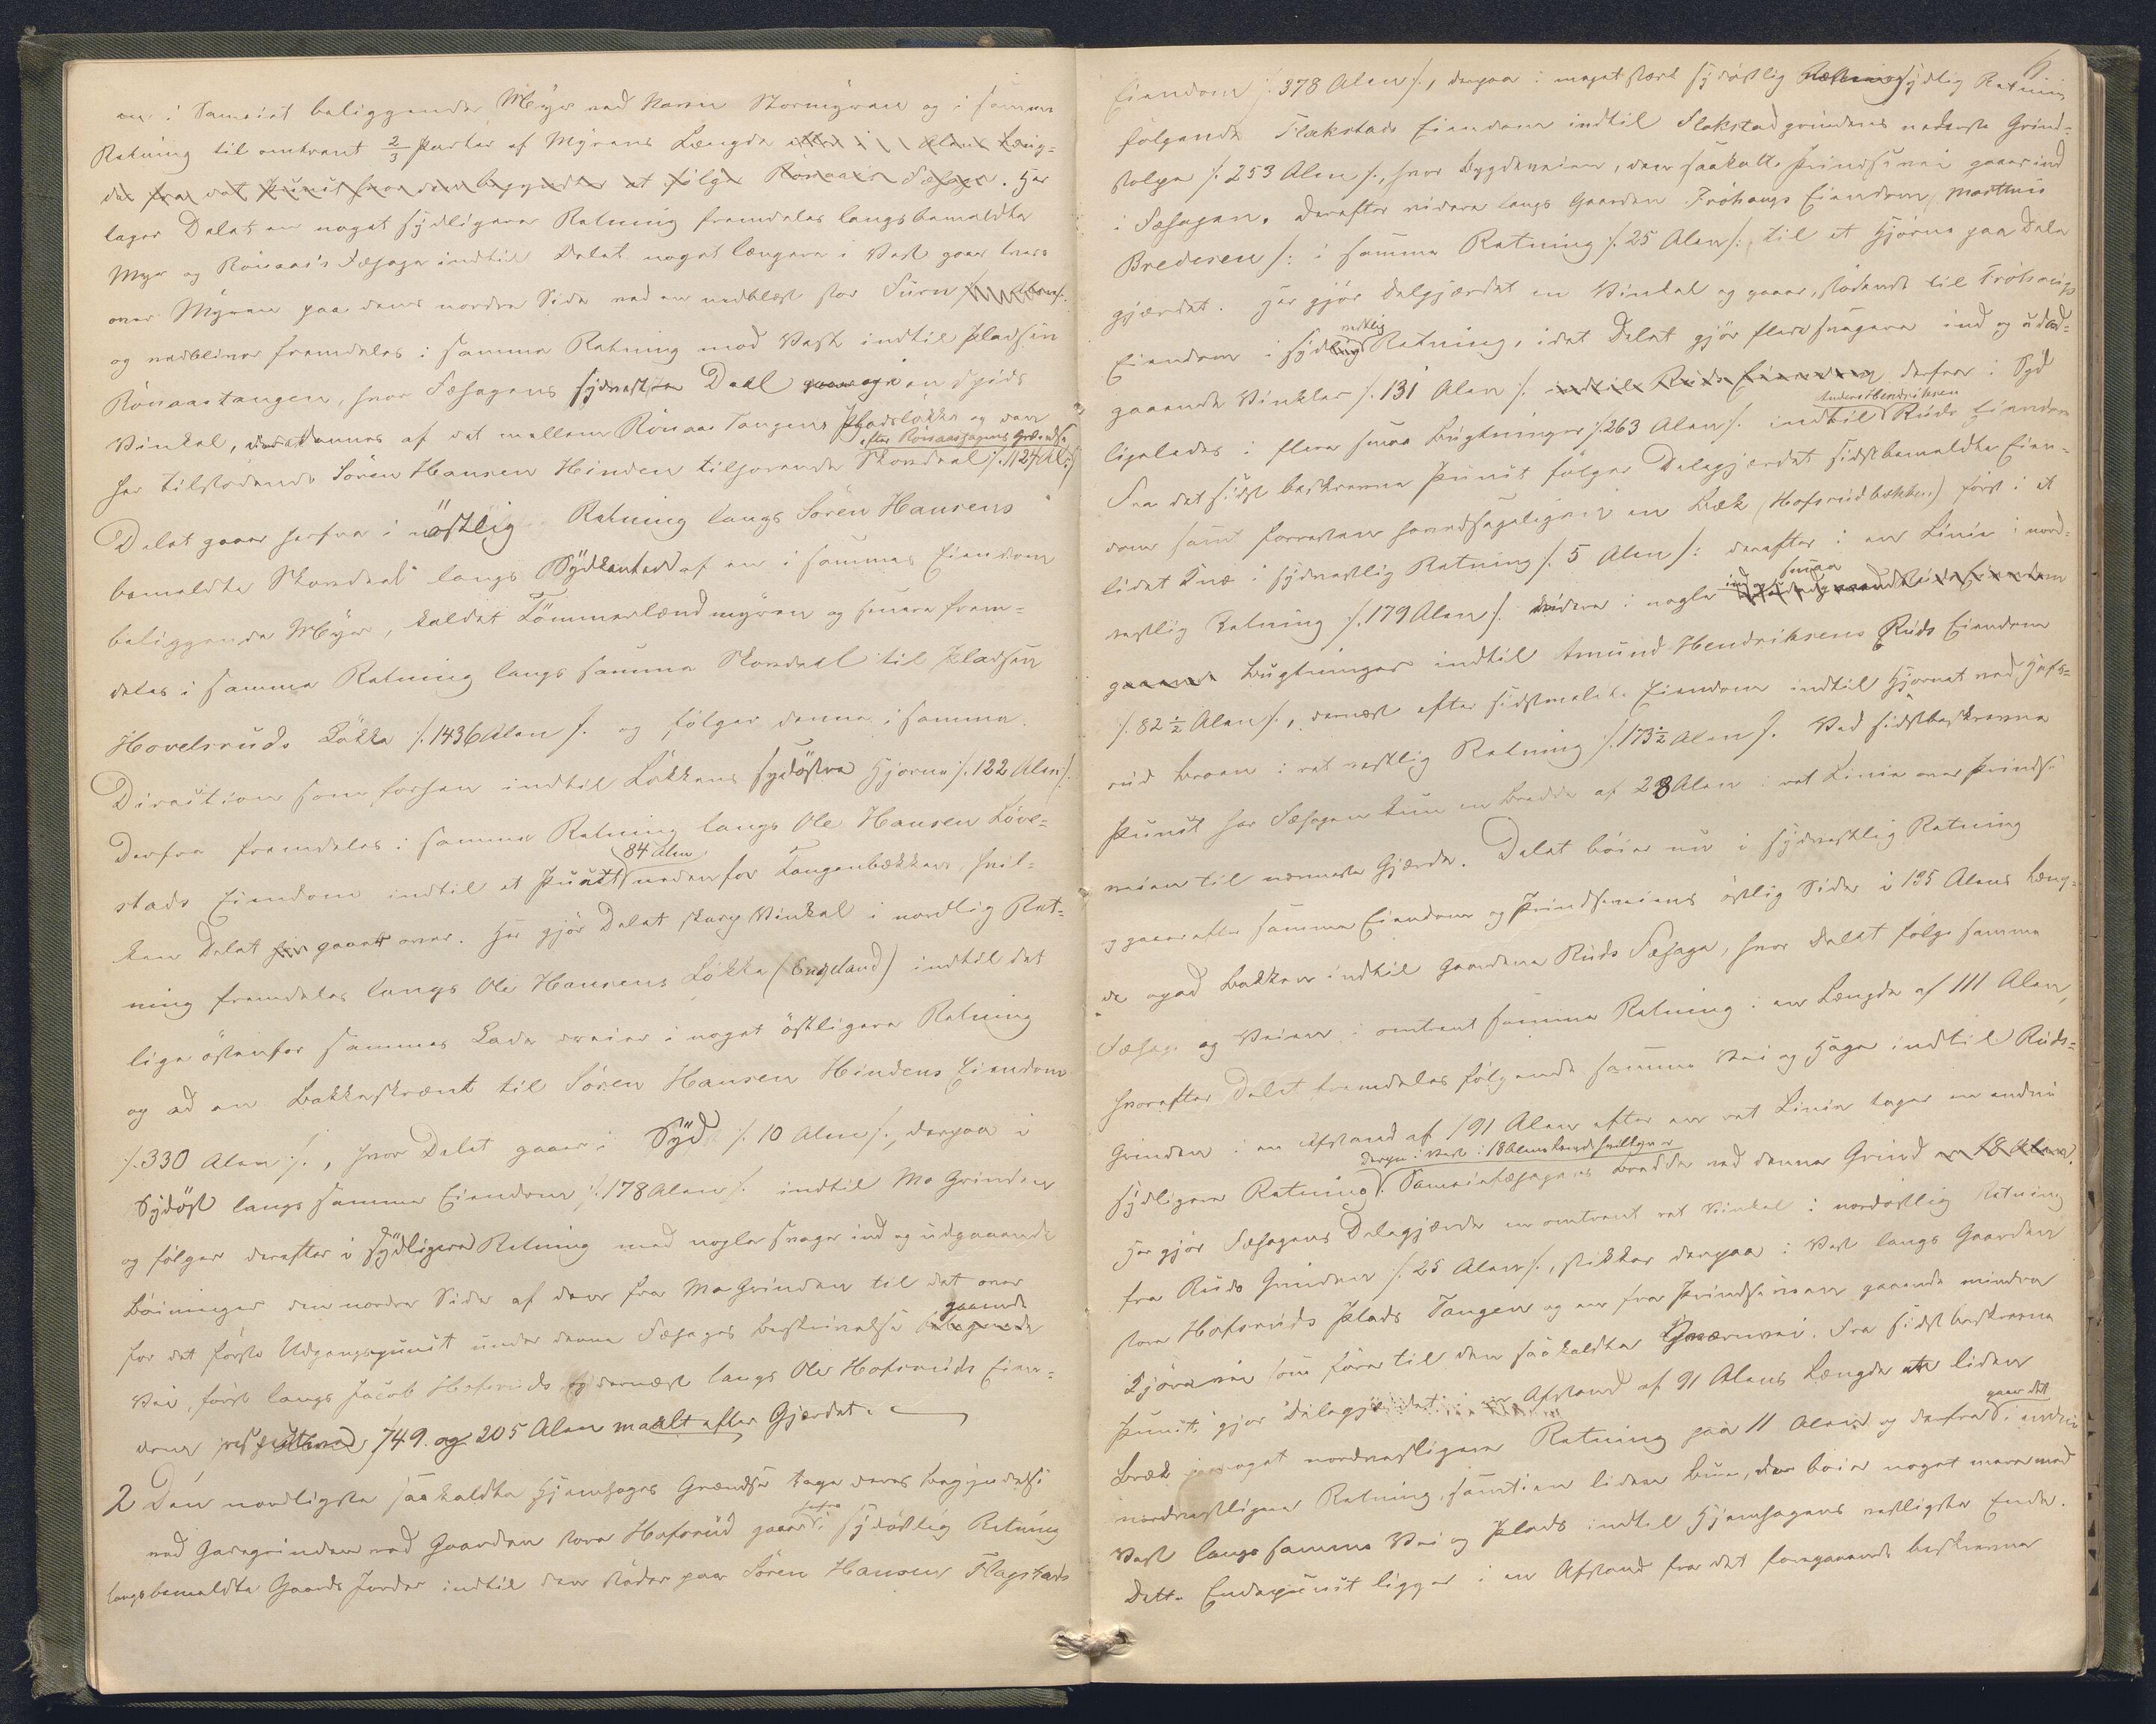 en i Sameiet beliggende Myr ved Navn Stormyren og i samme
Retning til omtrent 2/3 Parter af Myrens Længde eller i Alens Læng-
de fra det Punct hvor den begynder at følge Rönaas's Fæhage. Her
tager Delet en noget sydligere Retning fremdeles langs bemeldte
Myr og Rönaas's Fæhage indtil Delet noget længere i Vest gaar tvers
over Myren paa dens nordre Side ved en nedblæst stor Furu
og vedbliver fremdeles i samme Retning mod Vest indtil Pladsen
Rönaastangen, hvor Fæhagens sydvestre Deel gaar og i en spids
Vinkel, dannes af det mellem Rönaas Tangens Pladsløkke og den
efter Rönaashagens Grændse
her tilstødende Sören Hansen Hinden tilhørende Skovdeel /:1124 Al:/
Delet gaar herfra i östlig Retning langs Sören Hansens
bemeldte Skovdeel langs Sydkanten af en i sammes Eiendom
beliggende Myr, kaldet Tömmerlændmyren og senere frem-
deles i samme Retning langs samme Skovdeel til Pladsen
Hovelsruds Løkke /:1436 Alen:/ og følger denne i samme
Direction som forhen indtil Løkkens sydöstre Hjørne /:122 Alen:/
Derfra fremdeles i samme Retning langs Ole Hansen Löve-
84 Alen
stads Eiendom indtil et Punct nedenfor Tangenbækken, hvil-
ken Delet her gaar over. Her gjör Delet skarp Vinkel i nordlig Ret-
ning fremdeles langs Ole Hansens Løkke (Engeland) indtil det
lige östenfor sammes Lade dreier i noget östligere Retning
og ad en Bakkeskrænt til Sören Hansen Hindens Eiendom
/:330 Alen:/, hvor Delet gaar i Syd /:10 Alen:/, derpaa i
Sydöst langs samme Eiendom /:178 Alen:/ indtil Mo Grinden
og følger derefter i sydligere Retning med nogle svage ind og udgaaende
Böininger den nordre Side af den fra Mo Grinden til det over
gaaende
for det første Udgangspunct under denne Fæhages Beskrivelse
Vei, først langs Jacob Hofsruds og dernæst langs Ole Hofsruds Eien-
dom 749 og 205 Alen maalt efter Gjærdet.
2 Den nordligste saakaldte Hjemhages Grændse tage deres Begyndelse
herfra
ved Gadegrinden ved Gaarden store Hofsrud gaar i sydöstlig Retning
langs bemeldte Gaards Jorder indtil den støder paa Sören Hansen Flagstads
Eiendom /:378 Alen:/, derpaa i meget sterk sydöstlig sydlig Retning
følgende Flakstads Eiendom indtil Flakstadgrindens nederste Grind-
stolpe /:253 Alen:/, hvor Bygdeveien, den saakaldte Prindsevei gaar ind
i Fæhagen. Derefter videre langs Gaarden Fröhougs Eiendom, Marthus
Bredesen /: i samme Retning /:25 Alen:/ til et Hjørne paa Dele
gjærdet. Her gjör Delgjærdet en Vinkel og gaar, stødende til Fröhougs
vestlig
Eiendom i syd Retning, idet Delet gjør flere svagere ind og udad-
gaaende Vinkler /:131 Alen:/ indtil Ruds Eiendom, derfra i Syd
Anders Hendriksen
ligeledes i flere smaa Bugtninger /:263 Alen:/ indtil Ruds Eiendom
Fra det sidst beskrevne Punct følger Delegjærdet sidstbemeldte Eien-
dom samt forresten hovedsagelig en Bæk (Hofsrudbækken) først i et
lidet Knæ i sydvestlig Retning /:5 Alen:/ derefter i en Linie i nord-
ind og smaa
vestlig Retning /:179 Alen:/ videre i nogle
gaaende Bugtninger indtil Amund Hendriksens Ruds Eiendom
/:82½ Alen:/, dernæst efter sidstmeldte Eiendom indtil Hjørnet ved Hofs-
rud Broen i ret vestlig Retning /:173½ Alen:/. Ved sidstbeskrevne
Punct har Fæhagen kun en Bredde af 28 Alen i ret Linie over Prindse
veien til nærmeste Gjærde. Delet böier nu i sydvestlig Retning
og gaar efter samme Eiendom og Prindseveiens östlig Side i 135 Alens Læng-
de opad Bakken indtil Gaardene Ruds Fæhage, hvor Delet følge samme
Fæhage og Veien i omtrent samme Retning i en Længde af 111 Alen,
hvorefter Delet fremdeles følgende samme Vei og Hage indtil Ruds-
Grinden i en Afstand af 191 Alen efter en ret Linie tager en endnu
derpaa i Vest i 18 Alens
sydligere Retning. Sameiefæhagens Bredde ved denne Grind er 18 Alen.
Her gjör Fæhagens Delegjærde en omtrent ret Vinkel i nordöstlig Retning
fra Ruds Grinden /:25 Alen:/, stikker derpaa i Vest langs Gaarden
store Hofsruds Plads Tangen og en fra Prindseveien gaaende mindre
Kjörevei som förer til den saakaldte Qværnvei. Fra sidst beskrevne
Punct gjør Delegjærdet i en Afstand af 91 Alens Længde et lidet
gaar det
Bræk i noget nordvestligere Retning paa 11 Alen og derfra i endnu
nordvestligere Retning, samt i en liden Bue, der böier noget mere mod
Vest langs samme Vei og Plads indtil Hjemhagens vestligste Ende.
Dette Endepunct ligger i en Afstand fra det foregaaende beskrevne